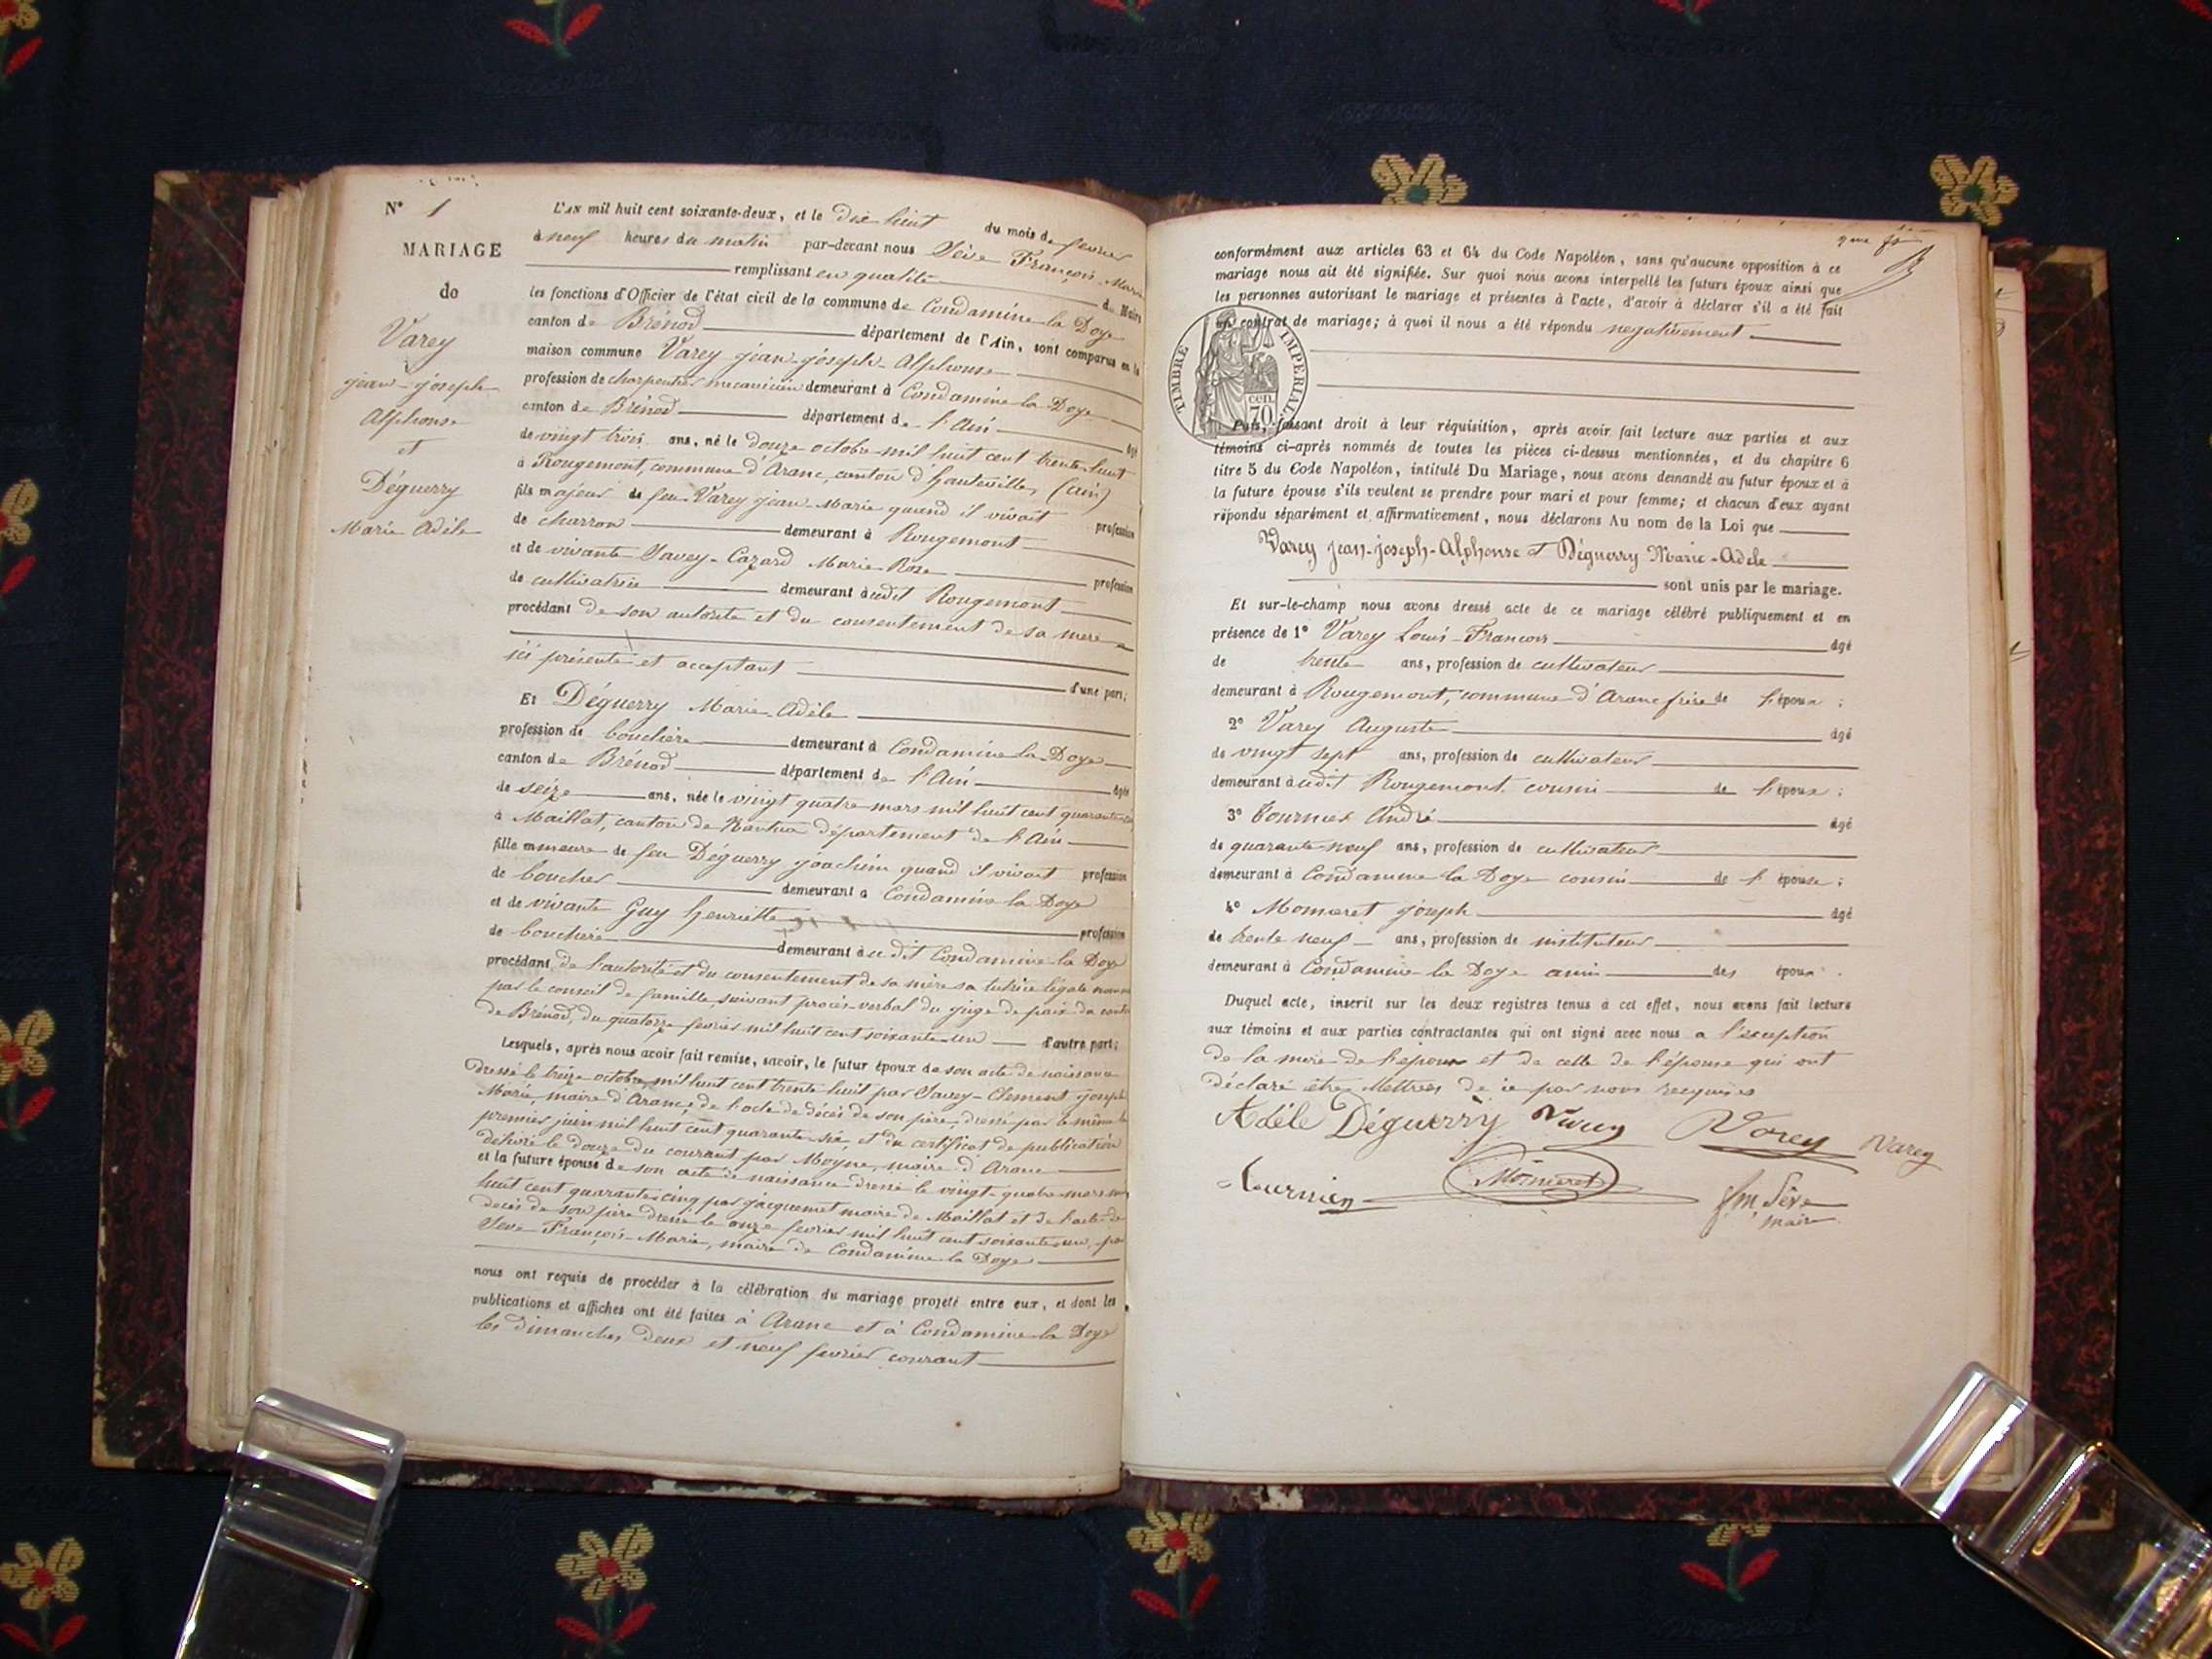 N° 1
MARIAGE
de
Varey
jean-joseph
Alphonse
et
Déguerry
Marie Adèle
L'AN mil huit cent soixante-deux, et le dix huit du mois de fevrier
à neuf heures du matin par-devant nous Sève François Marie
remplissant en qualité de Maire
les fonctions d'Officier de l'état civil de la commune de Condamine la Doye
canton de Brénod département de l'Ain, sont comparus en la
maison commune Varey jean-joseph Alphonse
profession de charpentier mecanicien demeurant à Condamine la Doye
canton de Brénod département de l'Ain âgé
de vingt trois ans, né le douze octobre mil huit cent trente huit
à Rougemont, commune d'Aranc, canton d'hauteville, (ain)
fils majeur de feu Varey jean-Marie quand il vivait profession
de charron demeurant à Rougemont
et de vivante Savey-Cazard Marie Rose profession
de cultivatrice demeurant audit Rougemont
procédant de son autorité et du consentement de sa mere
ici présente et acceptant d'une part;
Et Déguerry Marie-Adèle
profession de bouchère demeurant à Condamine-la-Doye
canton de Brénod département de l'Ain âgée
de seize ans, née le vingt quatre mars mil huit cent quarante
à Maillat, canton de Nantua département de l'Ain
fille mineure de feu Déguerry joachim quand il vivait profession
de boucher demeurant à Condamine la Doye
et de vivante Guy henriette profession
de bouchère demeurant audit Condamine-la Doye
procédant de l'autorité et du consentement de sa mère sa tutrice légale
par le conseil de famille, suivant procès-verbal du juge de paix du canton
de Brénod, du quatorze fevrier mil huit cent soixante-un d'autre part;
Lesquels, après nous avoir fait remise, savoir, le futur époux de son acte de naissance
dressé le treize octobre mil huit cent trente huit par Savey-Clement joseph
Marie, maire d'Aranc, de l'acte de décès de son père, dressé par le même le
premier juin mil huit cent quarante six, et du certificat de publication
délivré le douze du courant par Moyne, maire d'Aranc
et la future épouse de son acte de naissance dressé le vingt-quatre mars mil
huit cent quarante cinq par jacquemet maire de Maillat et de l'acte de
décès de son père dressé le onze fevrier mil huit cent soixante un, par
Sève François-Marie, maire de Condamine la Doye
nous ont requis de procéder à la célébration du mariage projeté entre eux, et dont les
publications et affiches ont été faites à Aranc et à Condamine la Doye
les dimanches deux et neuf fevrier courant
conformément aux articles 63 et 64 du Code Napoléon, sans qu'aucune opposition à ce
mariage nous ait été signifiée. Sur quoi nous avons interpellé les futurs époux ainsi que
les personnes autorisant le mariage et présentes à l'acte, d'avoir à déclarer s'il a été fait
un contrat de mariage; à quoi il nous a été répondu negativement
TIMBRE IMPERIAL
cen. 70
Puis, faisant droit à leur réquisition, après avoir fait lecture aux parties et aux
témoins ci-après nommés de toutes les pièces ci-dessus mentionnées, et du chapitre 6
titre 5 du Code Napoléon, intitulé Du Mariage, nous avons demandé au futur époux et à
la future épouse s'ils veulent se prendre pour mari et pour femme; et chacun d'eux ayant
répondu séparément et affirmativement, nous déclarons Au nom de la Loi que
Varey Jean-joseph-Alphonse et Déguerry Marie-Adèle
sont unis par le mariage.
Et sur-le-champ nous avons dressé acte de ce mariage célébré publiquement et en
présence de 1° Varey Louis-François âgé
de trente ans, profession de cultivateur
demeurant à Rougemont, commune d'Aranc frère de l'époux;
2° Varey Auguste âgé
de vingt sept ans, profession de cultivateur
demeurant audit Rougemont cousin de l'époux;
3° Tournier André âgé
de quarante neuf ans, profession de cultivateur
demeurant à Condamine la Doye cousin de l'épouse;
4° Momeret joseph âgé
de trente neuf ans, profession de instituteur
demeurant à Condamine la Doye ami des époux.
Duquel acte, inscrit sur les deux registres tenus à cet effet, nous avons fait lecture
aux témoins et aux parties contractantes qui ont signé avec nous a l'exception
de la mère de l'epoux et de celle de l'épouse qui ont
déclaré être illettrées de ce par nous requises
Adèle Déguerry Varey Varey Varey
Tournier Momeret fm Sève
maire